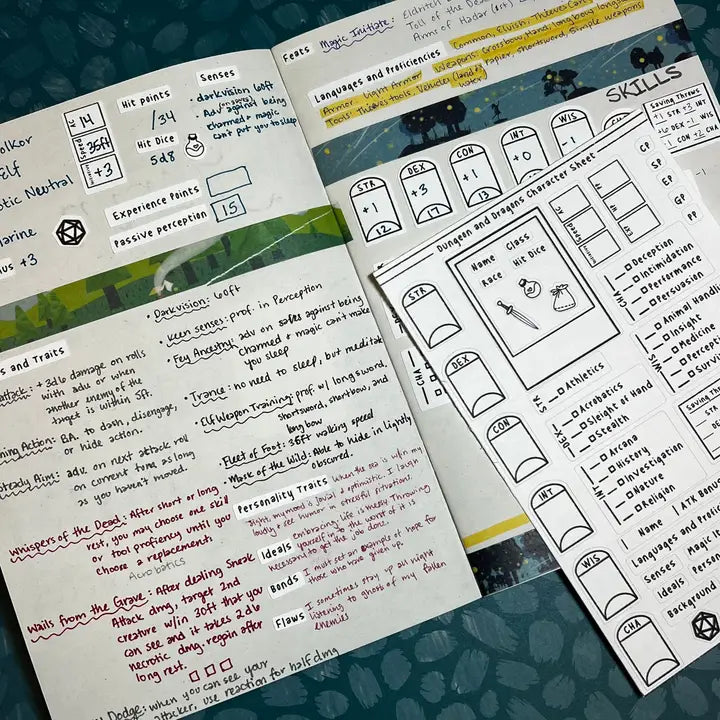 AC
14
Speed
35ft
Initiative
+3
Hit points
/34
Hit Dice
5d8
Senses
• darkvision 60ft
• Adv (on saves) against being
charmed + magic
can't put you to sleep
Experience Points
Passive perception
15
+3
and Traits
attack: + 3d6 damage on rolls
with adv or when
another enemy of the
target is within 5ft.
Action: BA. to dash, disengage,
or hide action.
Steady Aim: adv. on next attack roll
on current turn as long
as you haven't moved.
Whispers of the Dead: After short or long
rest, you may choose one skill
or tool proficiency until you
choose a replacement.
Acrobatics
Wails from the Grave: After dealing Sneak
Attack dmg, target 2nd
creature w/in 30ft that you
can see and it takes 2d6
necrotic dmg. regain after
long rest.
Dodge: when you can see your
attacker, use reaction for half dmg
• Darkvision: 60ft
• Keen Senses: prof. in Perception
• Fey Ancestry: adv on saves against being
charmed + magic can't make
you sleep
• Trance: no need to sleep, but meditate
• Elf Weapon Training: prof. w/ longsword,
shortsword, shortbow, and
longbow
• Fleet of Foot: 35ft walking speed
• Mask of the Wild: Able to hide in lightly
obscured.
Personality Traits
When the sea is w/in my
sight, my mood is jovial + optimistic. I laugh
loudly + see humor in stressful situations.
Embracing life is merry. Throwing
Ideals
yourself into the worst of it is
necessary to get the job done.
Bonds
I must set an example of hope for
those who have given up.
Flaws
I sometimes stay up all night
listening to ghost of my fallen
enemies
Feats
Magic Initiate: Eldritch
Toll of the Dead
Arms of Hadar
Languages and Proficiencies
Common, Elvish, Thieves' Cant
Armor: Light Armor
Weapon: Crossbow, Hand, longbow, longsword,
rapier, shortsword, simple weapons
Tools: Thieves tools, Vehicles (land +
water)
SKILLS
STR
+1
12
DEX
+3
17
CON
+1
13
INT
+0
WIS
-1
Saving Throws
+1 STR +3 INT
+6 DEX -1 WIS
+1 CON +2 CHA
Dungeon and Dragons Character Sheet
STR
DEX
CON
INT
WIS
CHA
Name
Class
Race
Hit Dice
AC
Speed
Initiative
HP
PP
EXP
CP
SP
EP
GP
PP
CHA
Deception
Intimidation
Performance
Persuasion
WIS
Animal Handling
Insight
Medicine
STR
Athletics
DEX
Acrobatics
Sleight of Hand
Stealth
INT
Arcana
History
Investigation
Nature
Religion
Name
ATK Bonus
Languages and
Senses
Magic
Ideals
Background